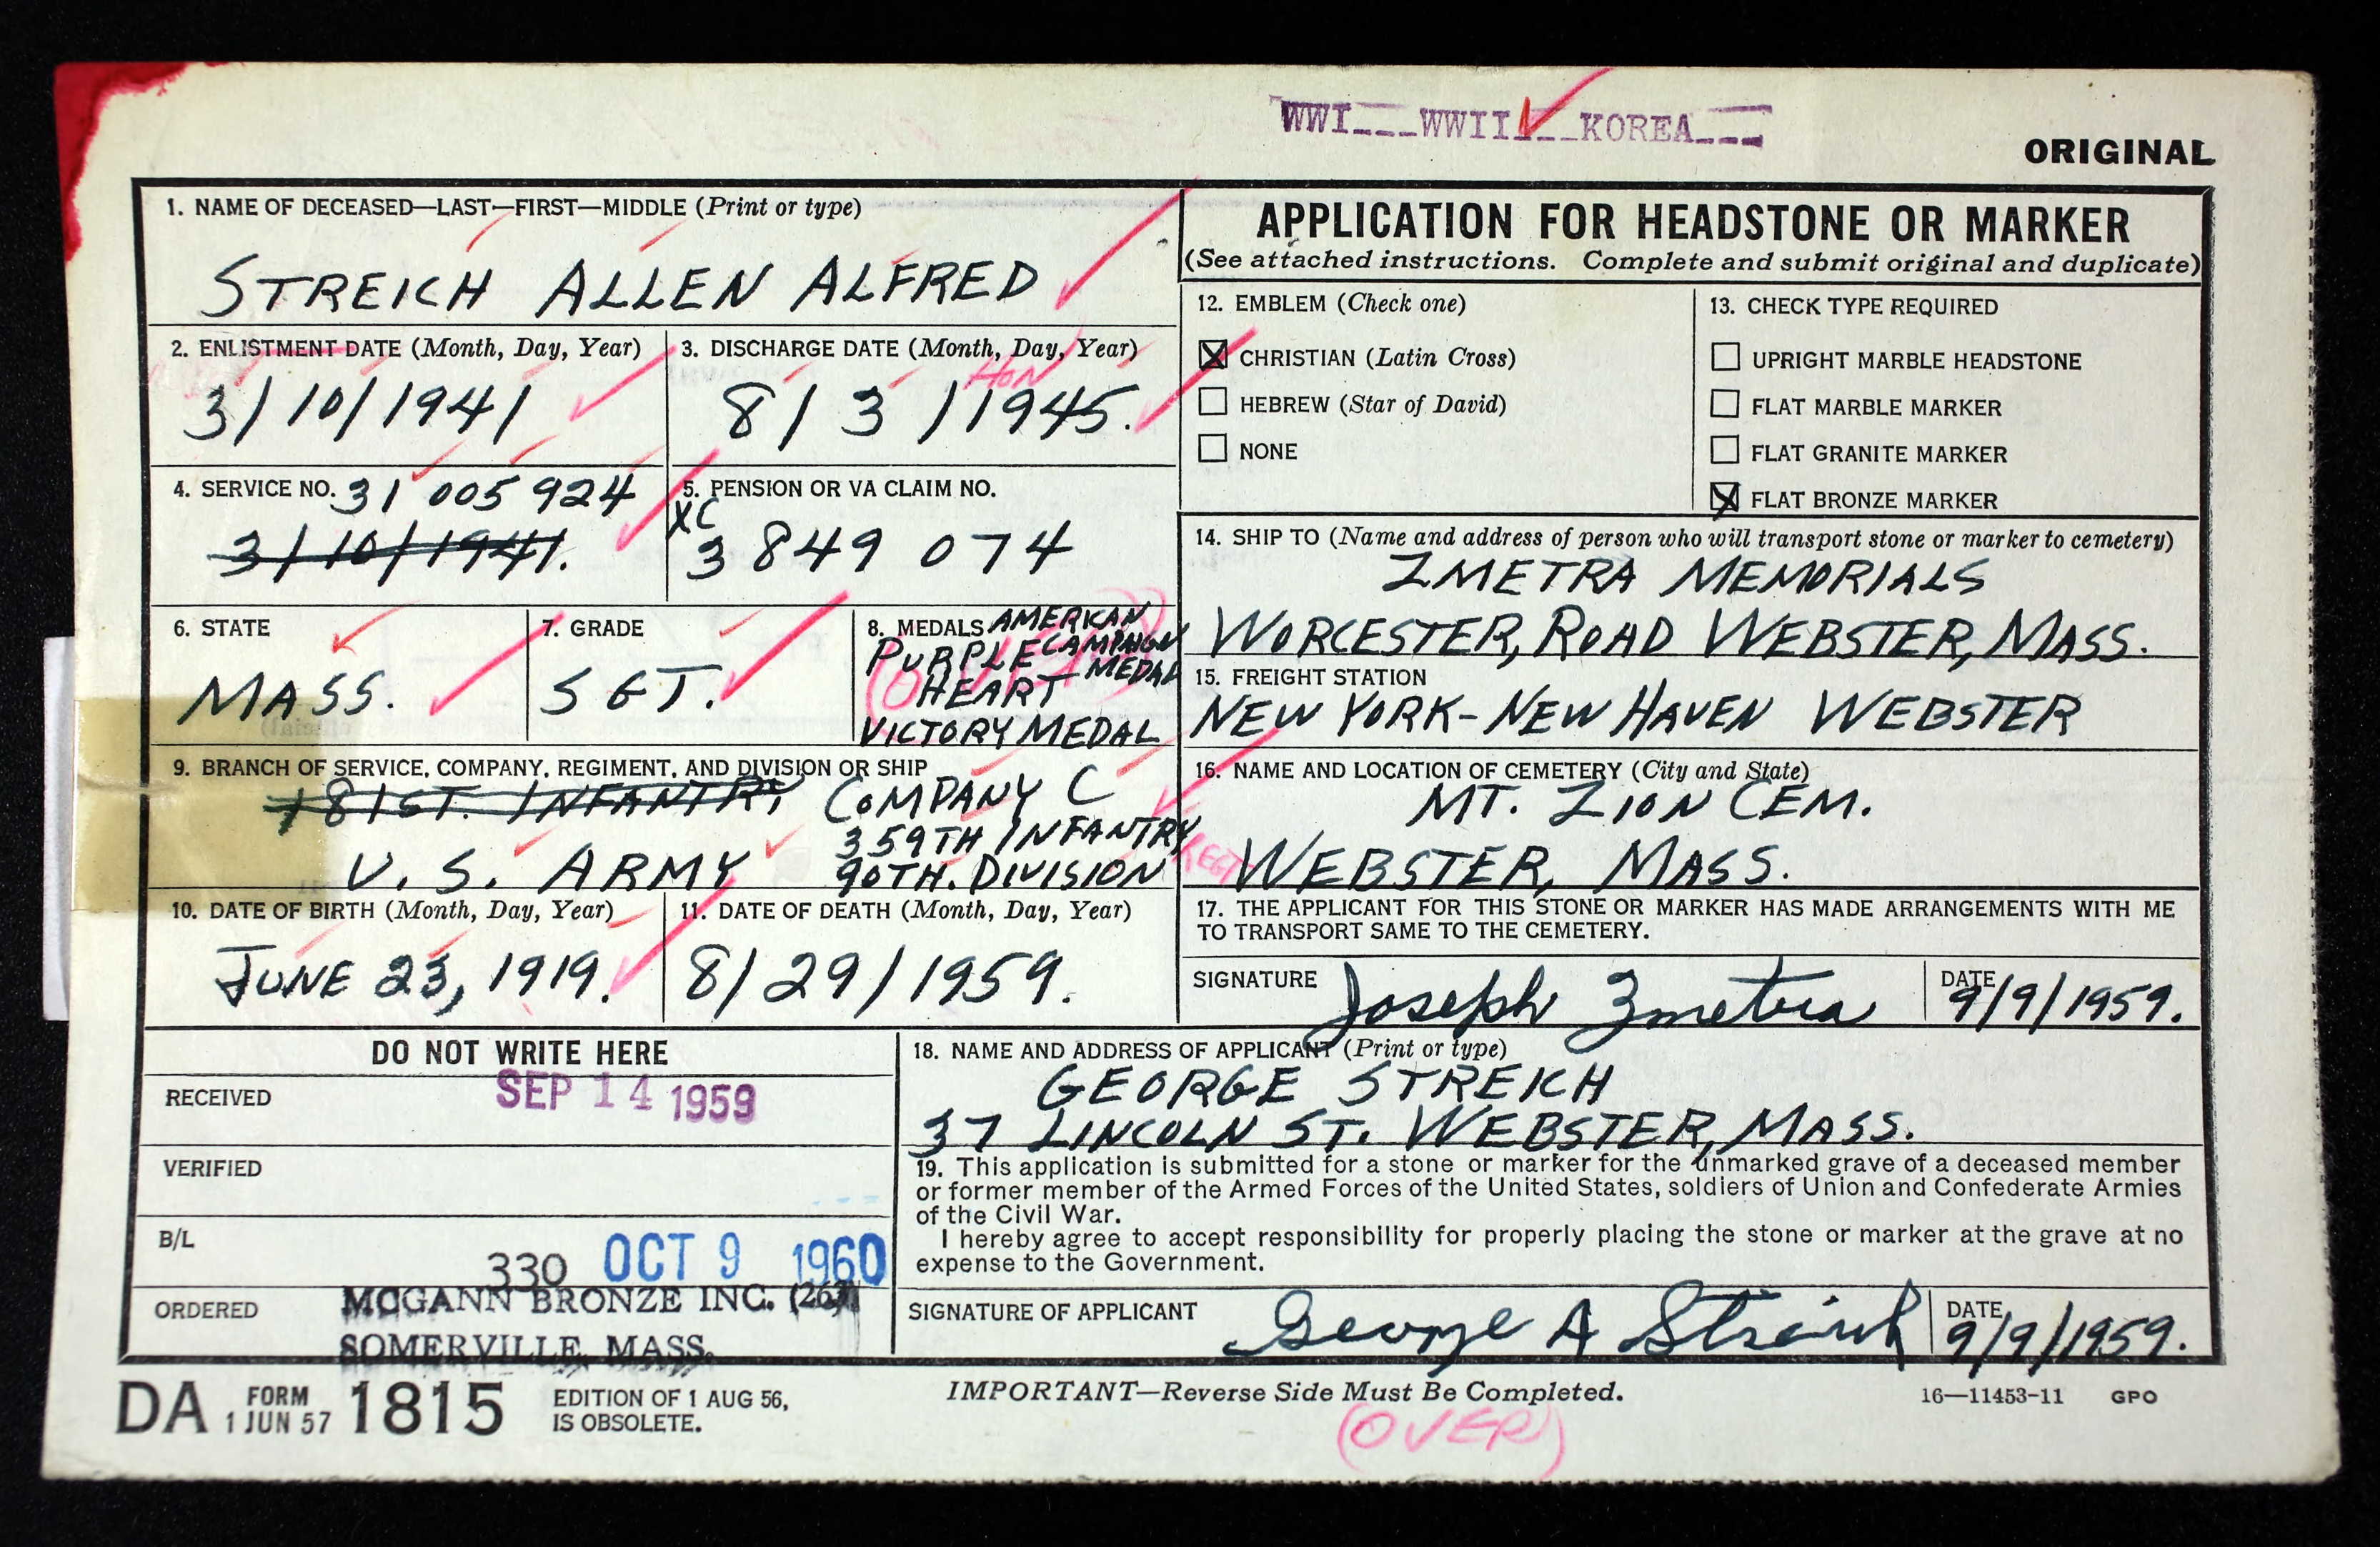 WWI___WWII___KOREA___
ORIGINAL
1. NAME OF DECEASED—LAST—FIRST—MIDDLE (Print or type)
STREICH ALLEN ALFRED
2. ENLISTMENT DATE (Month, Day, Year)
3/10/1941
3. DISCHARGE DATE (Month, Day, Year)
HON
8/3/1945.
4. SERVICE NO. 31 005 924
3/10/1941.
5. PENSION OR VA CLAIM NO.
XC
3 849 074
6. STATE
MASS.
7. GRADE
SGT.
8. MEDALS AMERICAN
PURPLE CAMPAIGN
HEART MEDAL
VICTORY MEDAL
(OVER)
9. BRANCH OF SERVICE, COMPANY, REGIMENT, AND DIVISION OR SHIP
181ST. INFANTRY COMPANY C
359TH INFANTRY
U. S. ARMY 90TH. DIVISION
10. DATE OF BIRTH (Month, Day, Year)
JUNE 23, 1919.
11. DATE OF DEATH (Month, Day, Year)
8/29/1959.
APPLICATION FOR HEADSTONE OR MARKER
(See attached instructions. Complete and submit original and duplicate)
12. EMBLEM (Check one)
CHRISTIAN (Latin Cross)
HEBREW (Star of David)
NONE
13. CHECK TYPE REQUIRED
UPRIGHT MARBLE HEADSTONE
FLAT MARBLE MARKER
FLAT GRANITE MARKER
FLAT BRONZE MARKER
14. SHIP TO (Name and address of person who will transport stone or marker to cemetery)
ZMETRA MEMORIALS
WORCESTER, ROAD WEBSTER, MASS.
15. FREIGHT STATION
NEW YORK-NEW HAVEN WEBSTER
16. NAME AND LOCATION OF CEMETERY (City and State)
MT. ZION CEM.
WEBSTER, MASS.
17. THE APPLICANT FOR THIS STONE OR MARKER HAS MADE ARRANGEMENTS WITH ME
TO TRANSPORT SAME TO THE CEMETERY.
SIGNATURE Joseph Zmetra DATE 9/9/1959.
DO NOT WRITE HERE
RECEIVED SEP 14 1959
VERIFIED
B/L 330 OCT 9 1960
ORDERED MCGANN BRONZE INC. (267)
SOMERVILLE, MASS.
18. NAME AND ADDRESS OF APPLICANT (Print or type)
GEORGE STREICH
37 LINCOLN ST. WEBSTER, MASS.
19. This application is submitted for a stone or marker for the unmarked grave of a deceased member
or former member of the Armed Forces of the United States, soldiers of Union and Confederate Armies
of the Civil War.
I hereby agree to accept responsibility for properly placing the stone or marker at the grave at no
expense to the Government.
SIGNATURE OF APPLICANT George A Streich DATE 9/9/1959.
DA FORM 1 JUN 57 1815 EDITION OF 1 AUG 56,
IS OBSOLETE.
IMPORTANT—Reverse Side Must Be Completed.
16—11453-11 GPO
(OVER)